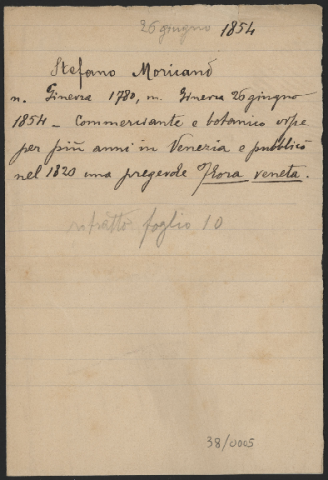 26 giugno 1854
Stefano Moricand
n. Ginevra 1780, m. Ginevra 26 giugno
1854 - Commerciante e botanico visse
per più anni in Venezia e pubblicò
nel 1820 una pregevole Flora veneta.
ritratto foglio 10
38/0005